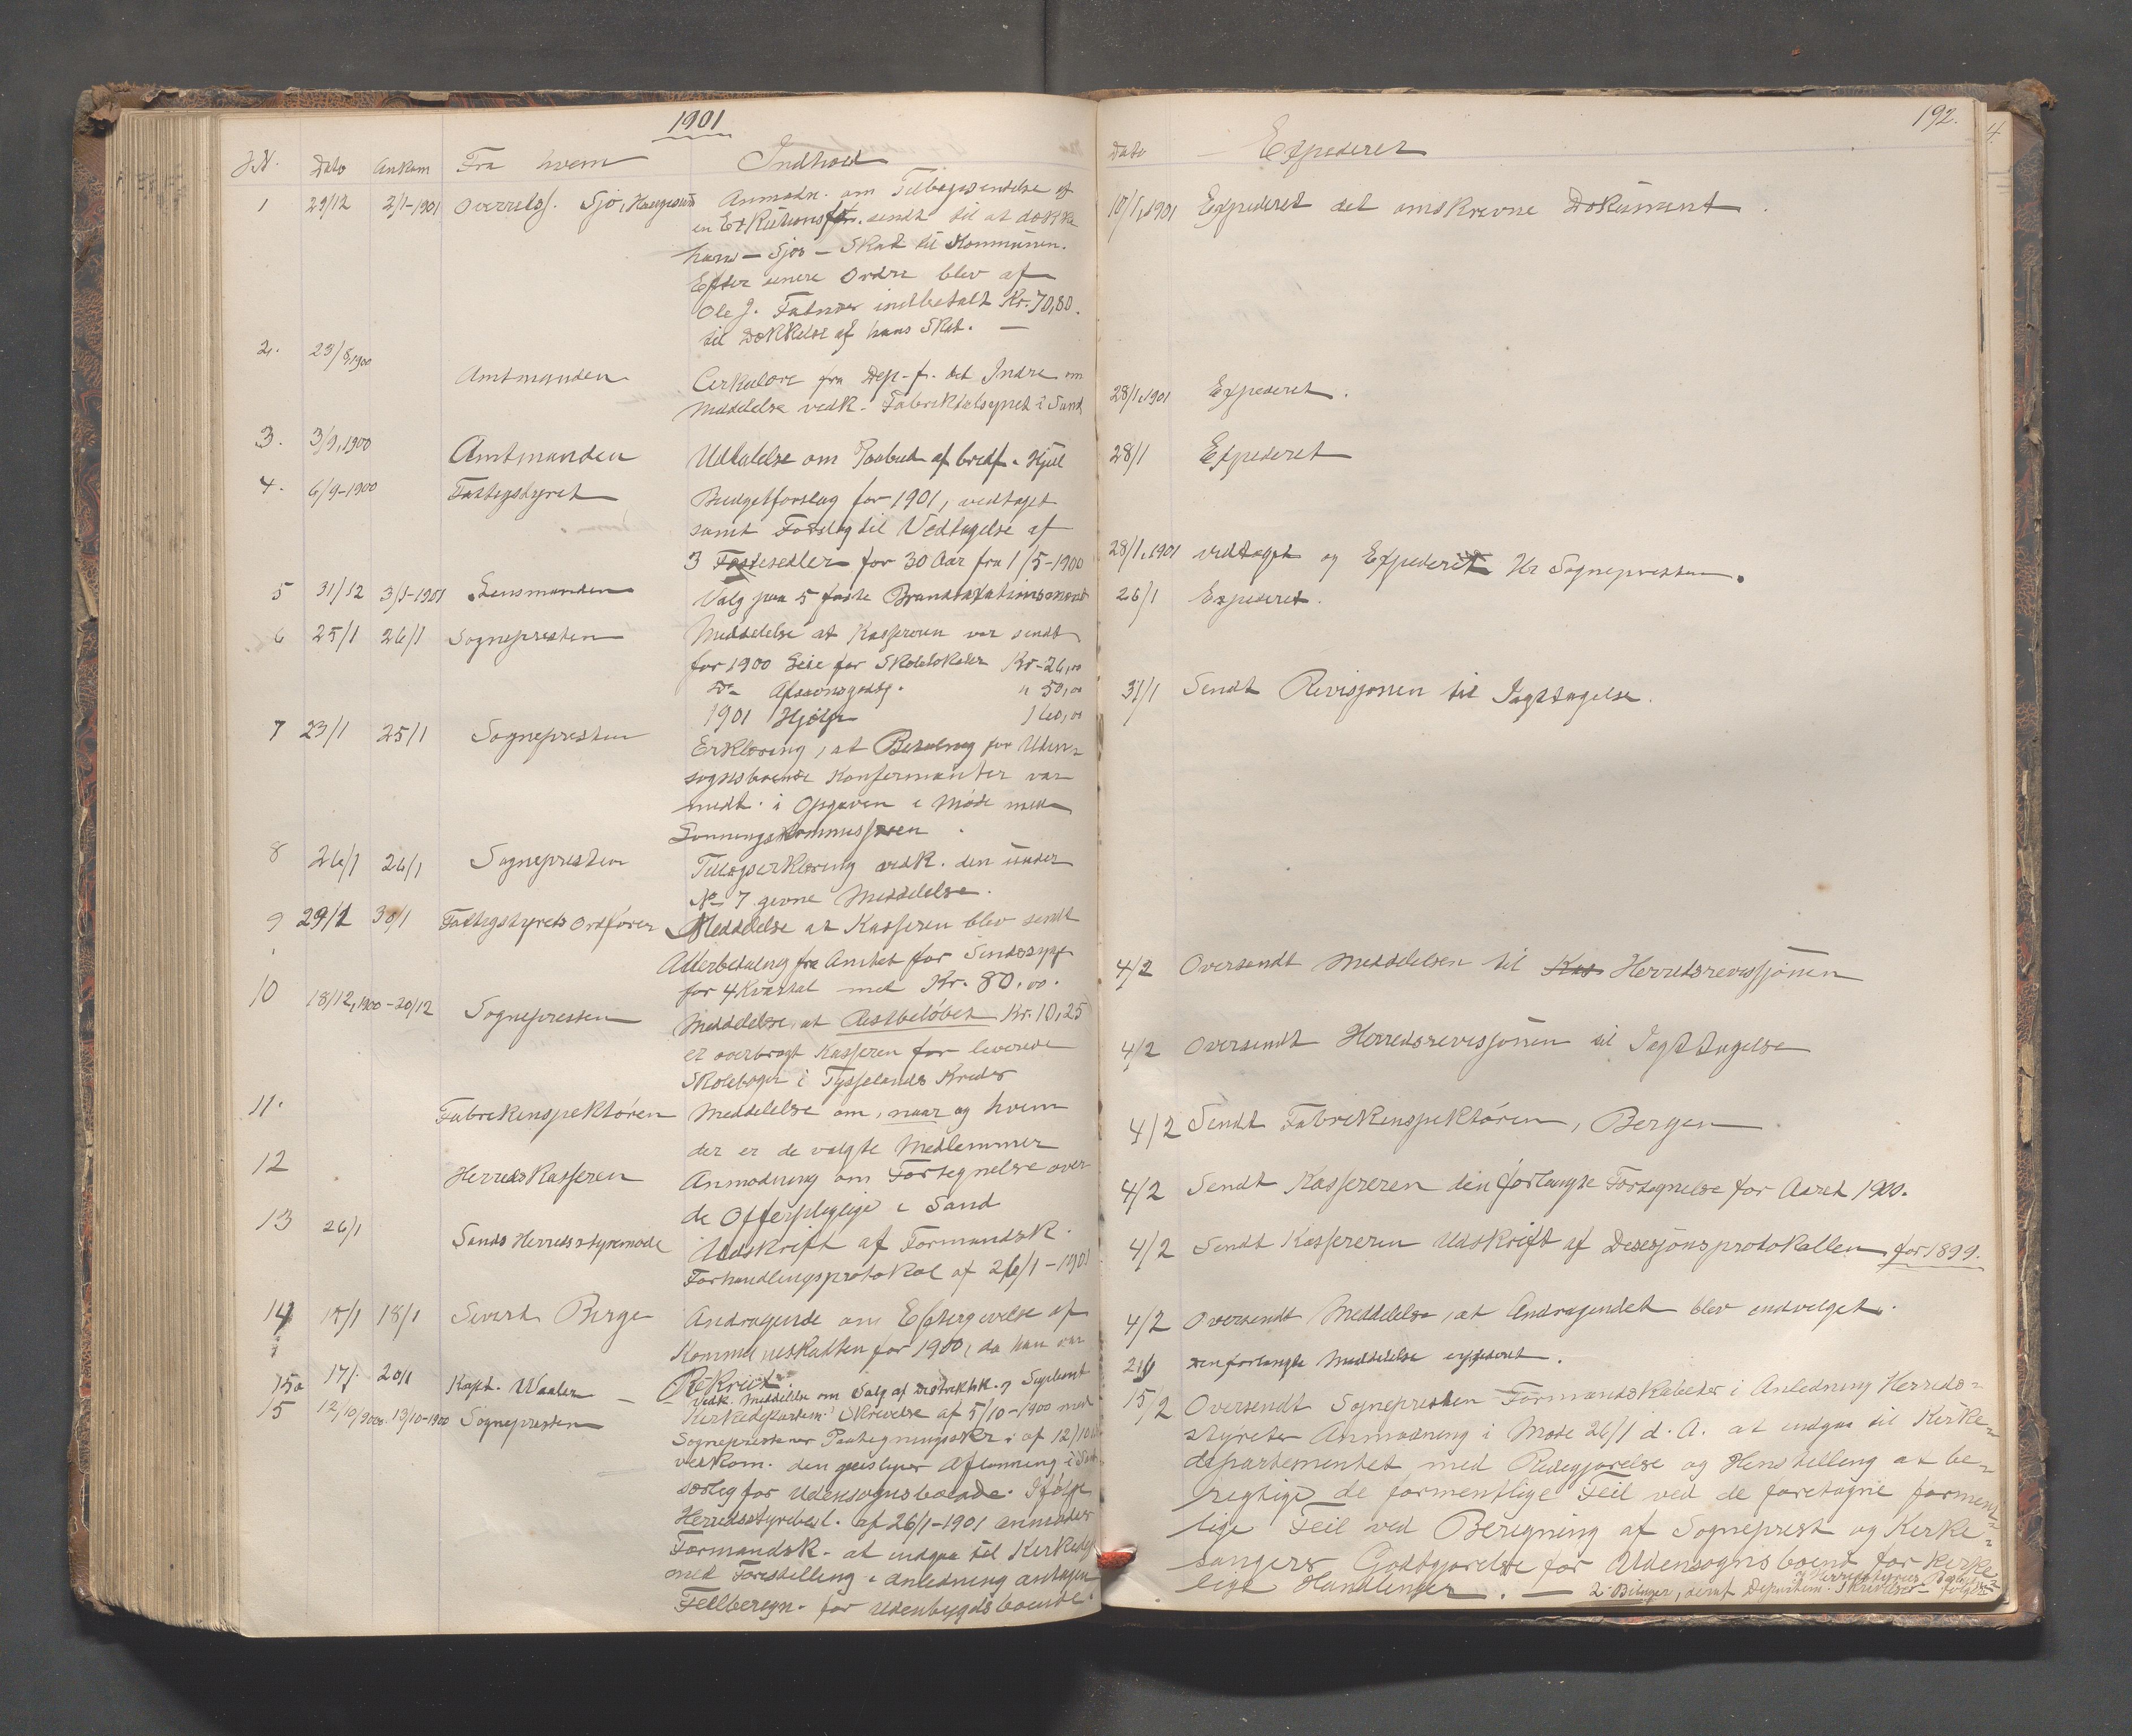 1901
J.N. Dato Ankom Fra hvem Indhold
1 29/12 2/1-1901 Overretss. Sjo, Haugesund Anmodn. om Tilbagesendelse af
en sendt til at dække
hans - Sjos - Skat til Kommunen.
Efter senere Ordre blev af
Ole J. indbetalt Kr. 70,80.
til Dækkelse af hans Skat. —
2. 23/8,1900 Amtmanden Cerkulære fra Dep. f. det Indre om
Meddelelse vedk. Fabriktilsynet i Sand
3. 3/9,1900 Amtmanden Udtalelse om Paabud af bredf. Hjul
4. 6/9-1900 Fattigstyret Budgetforslag for 1901, vedtaget
samt Forslag til Vedtagelse af
3 Festesedler for 30 Aar fra 1/5-1900
5 31/12 3/1-1901 Lensmanden Valg paa 5 faste Brandtaxationsmænd
6 25/1 26/1 Sognepresten Meddelelse at Kasseren var sendt
for 1900 Leie for Skolelokaler Kr. 26,00
Do " 50,00
1901 Hjælp 160,00
7 23/1 25/1 Sognepresten Erklæring, at Betaling for Uden-
sognsboende Konfermanter var
medt. i Opgaven i Møde med
Lønningskommissjonen.
8 26/1 26/1 Sognepresten Tillægserklæring vedk. den under
No 7 givne Meddelelse.
9 29/1 30/1 Fattigstyrets Ordfører Meddelelse at Kasseren blev sendt
Atterbetaling fra Amtet for Sindssyge
for 4 Kvartal med Kr. 80,00.
10 18/12,1900-20/12 Sognepresten Meddelelse, at Restbeløbet Kr. 10,25
er overbragt Kasseren for leverede
Skolebøger i Tysselands Kreds
11. Fabrikinspektøren Meddelelse om, naar og hvem
der er de valgte Medlemmer
12 Herredskasseren Anmodning om Fortegnelse over
de Offerpligtige i Sand
13 26/1 Sands Herredsstyremøde Udskrift af Formandsk.
Forhandlingsprotokol af 26/1-1901
14 15/1 18/1 Sivert Berge Andragende om Eftergivelse af
Kommuneskatten for 1900, da han var
Rekrut.
15a 17/1 20/1 Kapt. Waaler — Vedk. Meddelse om Valg af Distriktsk. og Suppleant
15 12/10,1900 13/10-1900 Sognepresten Kirkedepartem. Skrivelse af 5/10-1900 med
Sogneprestens Paategningsskr. af 12/10
vedkom. den geistlige Aflønning i Sand
særlig for Udensognsboende. Ifølge
Herredsstyrebesl. af 26/1-1901 anmodes
Formandsk. at indgaa til Kirkedep
med Forestilling i Anledning antagen
Feilberegn. for Udenbygdsboende.
192.
4
Dato Expederet
10/1,1901 Expederet det omskrevne Dokument.
28/1,1901 Expederet.
28/1 Expederet
28/1,1901 vedtaget og Expederet Hr Sognepresten.
26/1 Expederet.
31/1 Sendt Revisjonen til Iagttagelse.
4/2 Oversendt Meddelelsen til Kas Herredsrevisjonen
4/2 Oversendt Herredsrevisjonen til Iagttagelse
4/2 Sendt Fabrikinspektøren, Bergen.
4/2 Sendt Kassereren den forlangte Fortegnelse for Aaret 1900.
4/2 Sendt Kassereren Udskrift af Desisjonsprotokollen for 1899.
4/2 Oversendt Meddelelse, at Andragendet blev indvilget.
21/1 Den forlangte Meddelelse expederet.
15/2 Oversendt Sognepresten Formandskabets i Anledning Herreds-
styrets Anmodning i Møde 26/1 d. A. at indgaa til Kirke-
departementet med Redegjørelse og Henstilling at be-
rigtige de formentlige Feil ved de foretagne forment-
lige Feil ved Beregning af Sogneprest og Kirke-
sangers Godtgjørelse for Udensognsboend for kirke-
lige Handlinger. — og Herredsstyrets
2 Bilager, deraf Departem. Skrivelse - følger